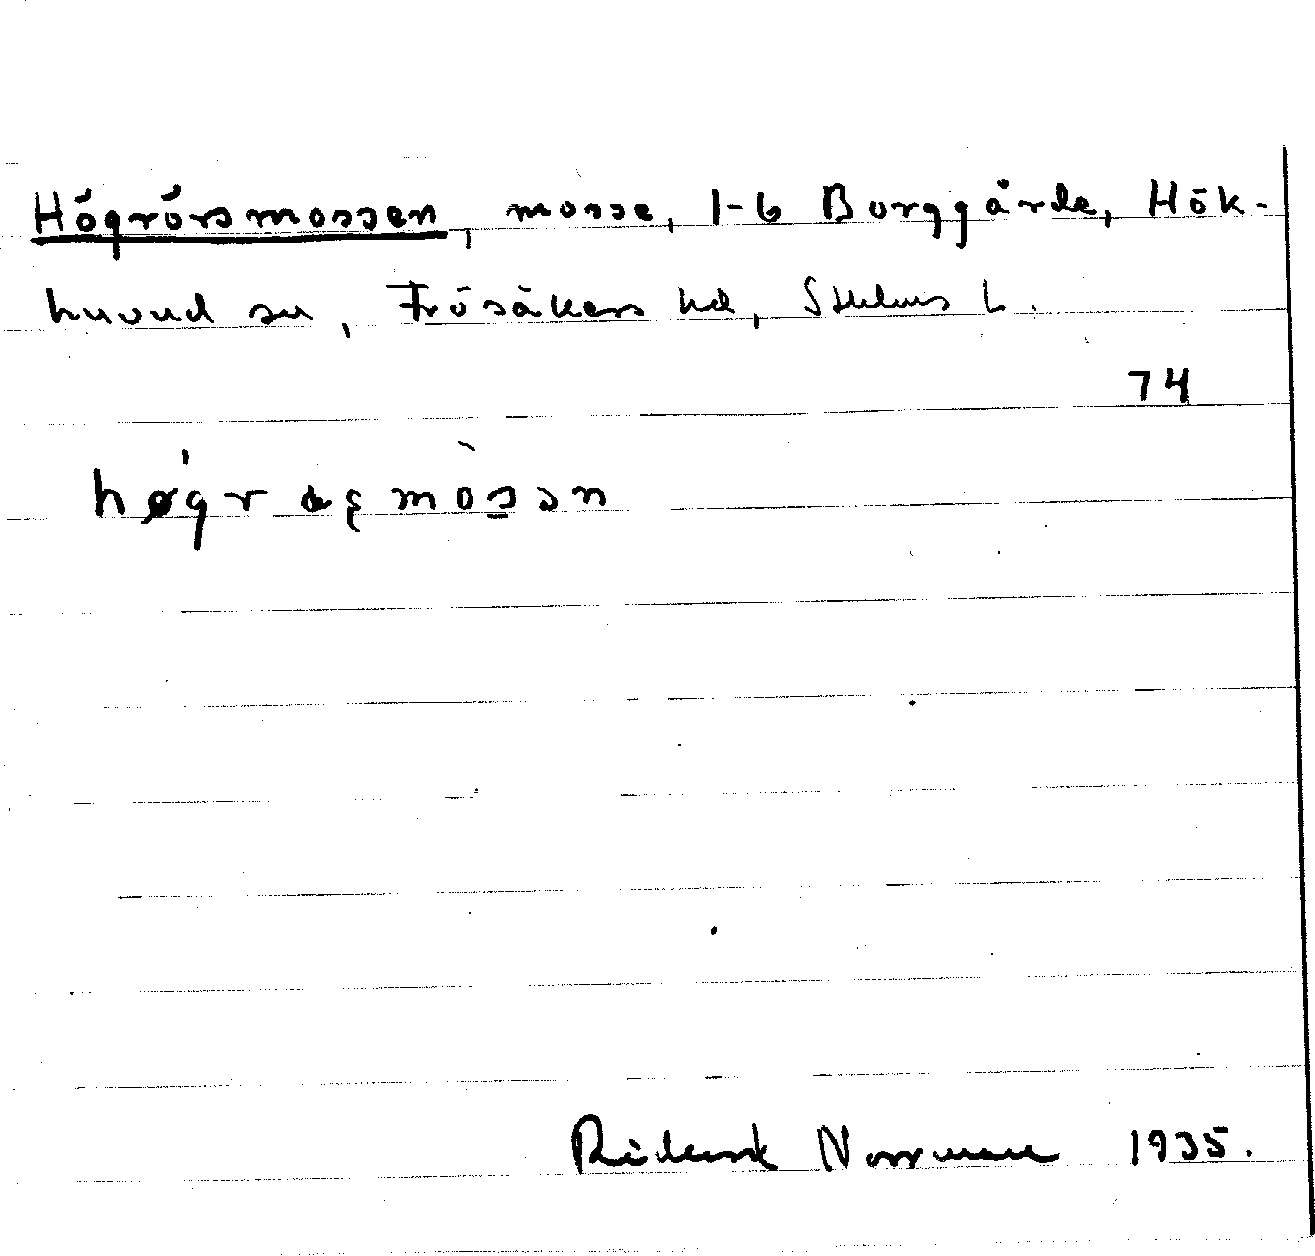 Högrörsmossen, mosse, 1-6 Borggårde, Hök-
huvud sn, Frösåkers hd, Sthlms L.
74
høgrøʂmòsən
Rickard Norrman 1935.